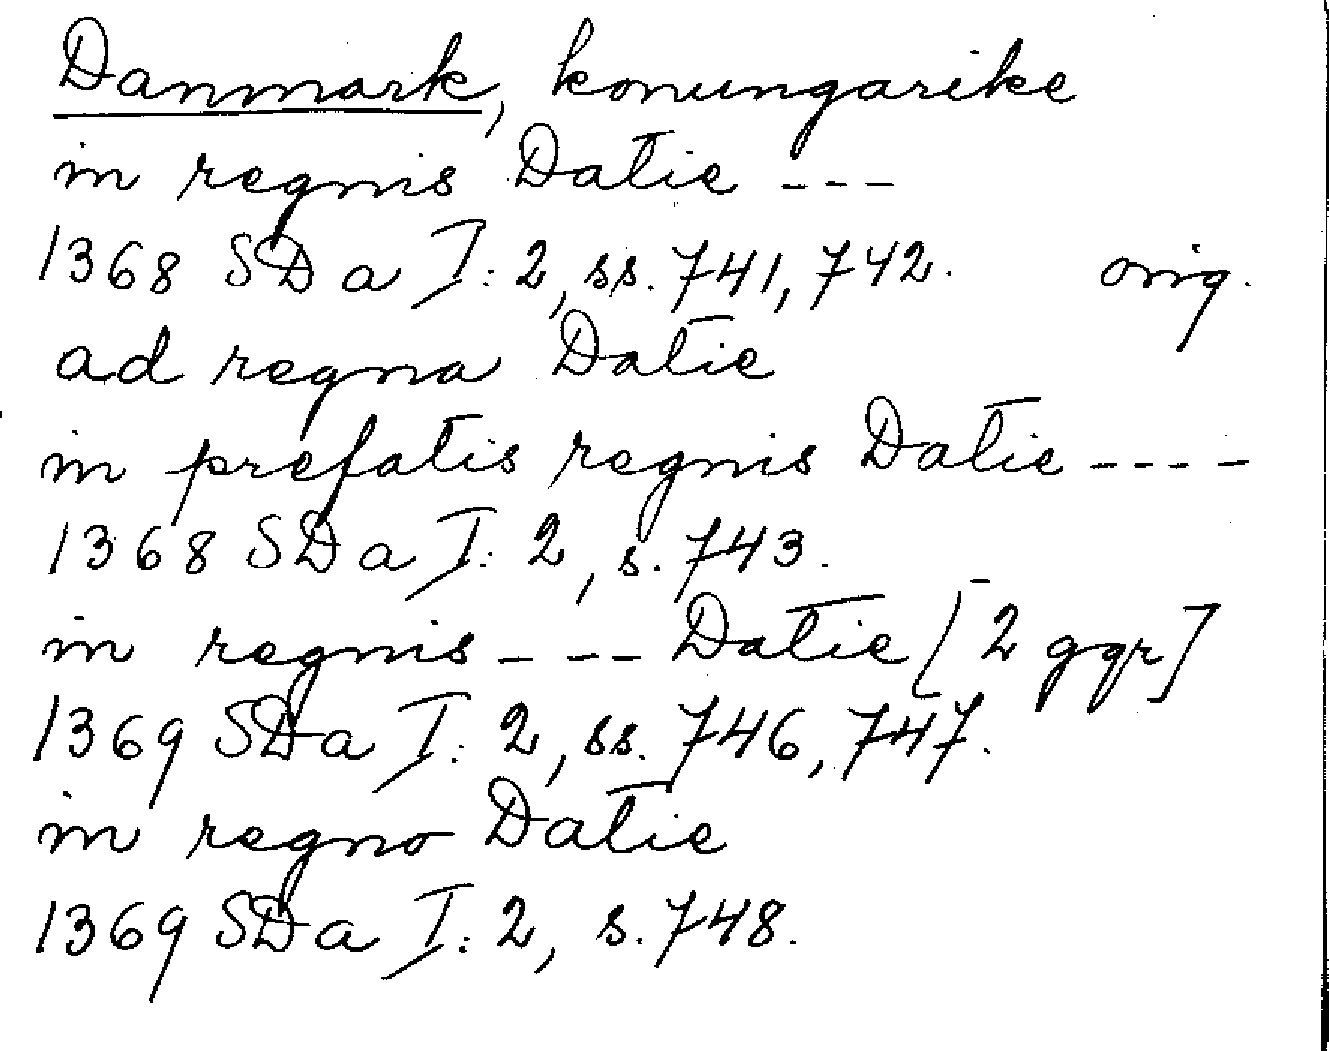 Danmark, konungarike
in regnis Datie ---
1368 SDa I:2, ss. 741, 742. orig.
ad regna Datie
in prefatis regnis Datie ----
1368 SDa I:2, s. 743.
in regnis --- Datie [2 ggr]
1369 SDa I:2, ss. 746, 747.
in regno Datie
1369 SDa I:2, s. 748.